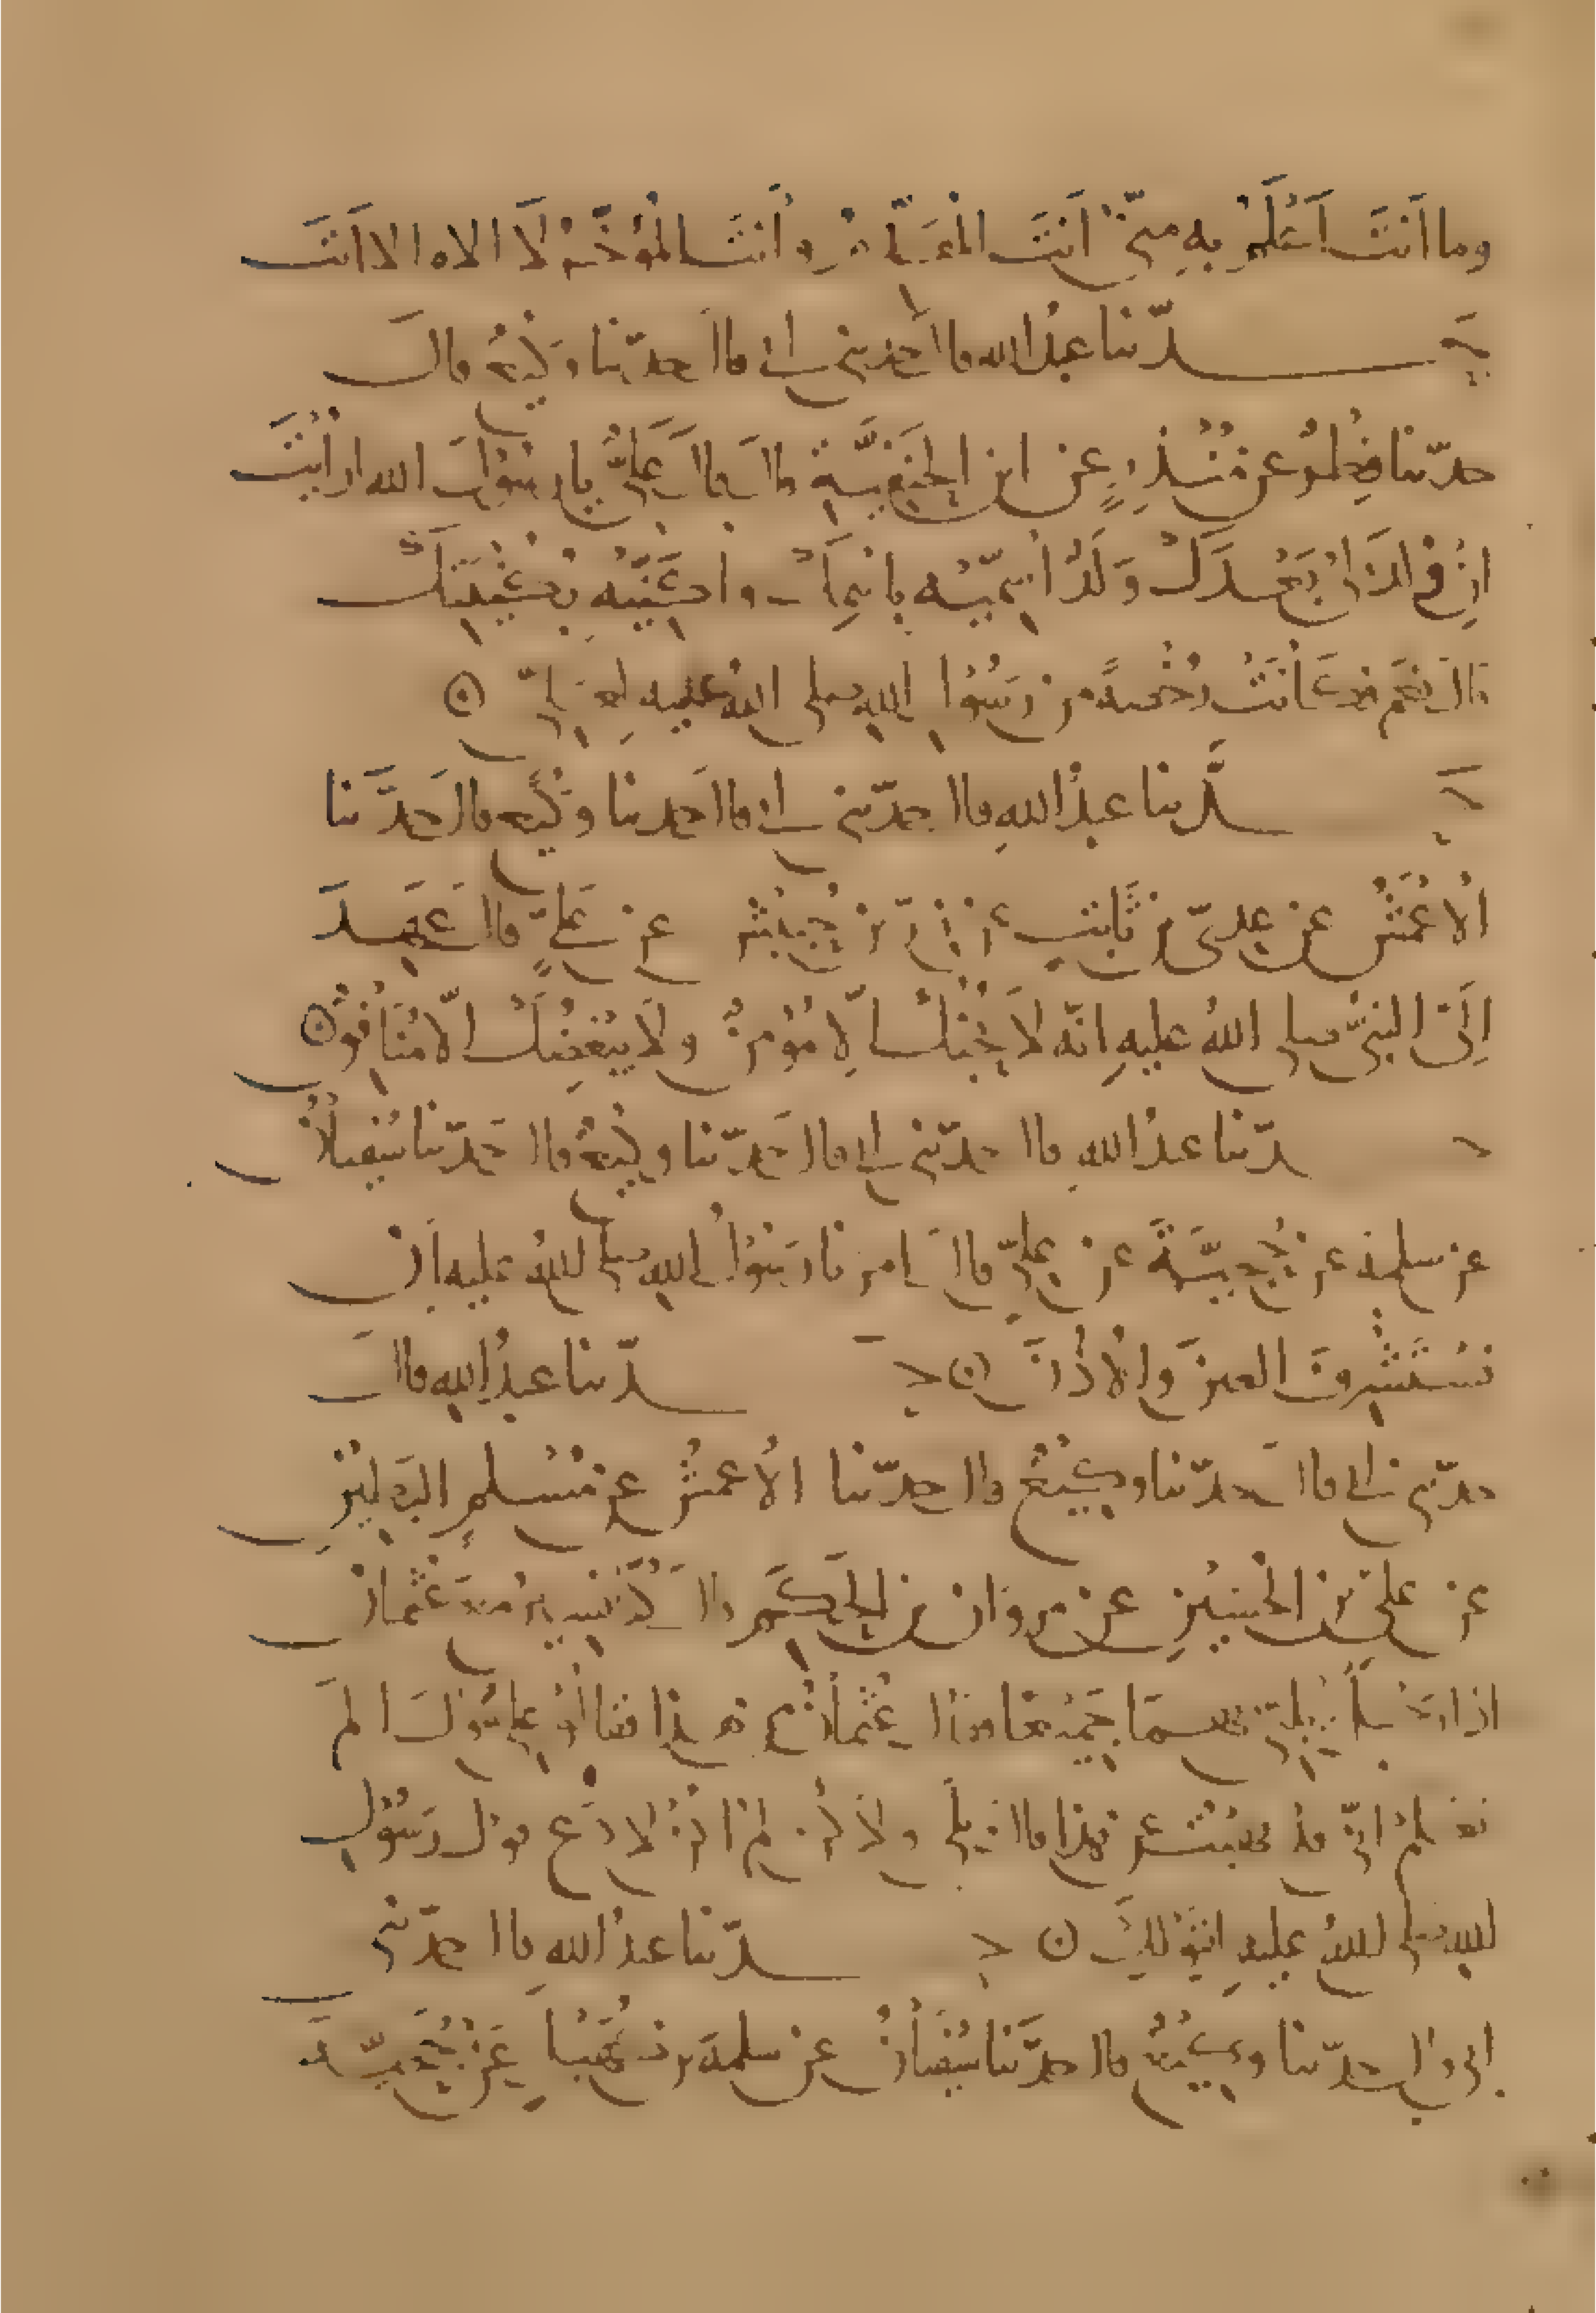 وما أنتَ أَعْلَمُ به مِنّي أنتَ المُقَدِّمُ وأنتَ المُؤَخِّرُ لَا الاه الا أَنتَ
حدّثنا عبدُ الله قال حدثني أبي قال حدّثنا وَكيعٌ قال
حدّثنا فِطرٌ عن مُنْذِرٍ عن ابن الحَنَفِيَّةِ قال قالَ عَلِيٌّ يا رسُولَ الله ارأيْتَ
إنْ وُلِدَ لي بَعْدَكَ وَلَدٌ أُسَمِّيْهِ باسْمِكَ وأُكَنِّيْهِ بكُنْيَتِكَ
قال نعَم فكَانَتْ رُخْصةً من رسُولِ اللهِ صلى اللهُ عليه لعَلِيٍّ ۞
حدَّثنا عبدُ اللهِ قال حدّثني أبي قال حدثنا وكيعٌ قال حدَّثنا
الأعْمَشُ عن عدِيّ بن ثَابتٍ عن زِرّ بن حُبَيْشٍ عن عَليٍّ قال عَهِدَ
إلَيّ النبيُّ صلى اللهُ عليهِ انّه لَا يُحِبُّكَ إلّا مُؤْمِنٌ ولَا يبْغِضُكَ الّا مُنَافِقٌ ۞
حدّثنا عبدُ اللهِ قال حدّثني أبي قال حَدّثنا وكيعٌ قال حَدّثنا سُفيانُ
عن سلمة عن حُجيَّةَ عن عليٍّ قال امرنا رَسُولُ اللهِ صلى اللهُ عليه أَن
نسْتَشْرِفَ العينَ والأُذُنَ ۞ حدّثنا عبدُ اللهِ قال
حدّثني أبي قال حدّثنا وكيْعٌ قال حدّثنا الأعمشُ عن مُسْلمٍ البَطِيْنِ
عن عليّ بن الحُسَيْنِ عن مروان بن الحَكَمِ قال كُنّا نسير مع عُثمان
اذا رجُلٌ يُلبّي بهما جَمِيْعًا فقال عُثمانُ مَن هذا فقالُوا عليٌّ فقالَ ألَم
تعلمْ انّي قد نهيْتُ عن هذا قال بلى ولكن لم اكنْ لادَع قول رسُولِ
اللهِ صلى اللهُ عليهِ لقَوْلِكَ ۞ حدّثنا عبدُ اللهِ قال حدّثني
أبي قال حدّثنا وكيْعٌ قال حدَّثنا سُفْيانُ عن سلمةَ بن كُهَيْلٍ عَنْ حُجَيَّةَ